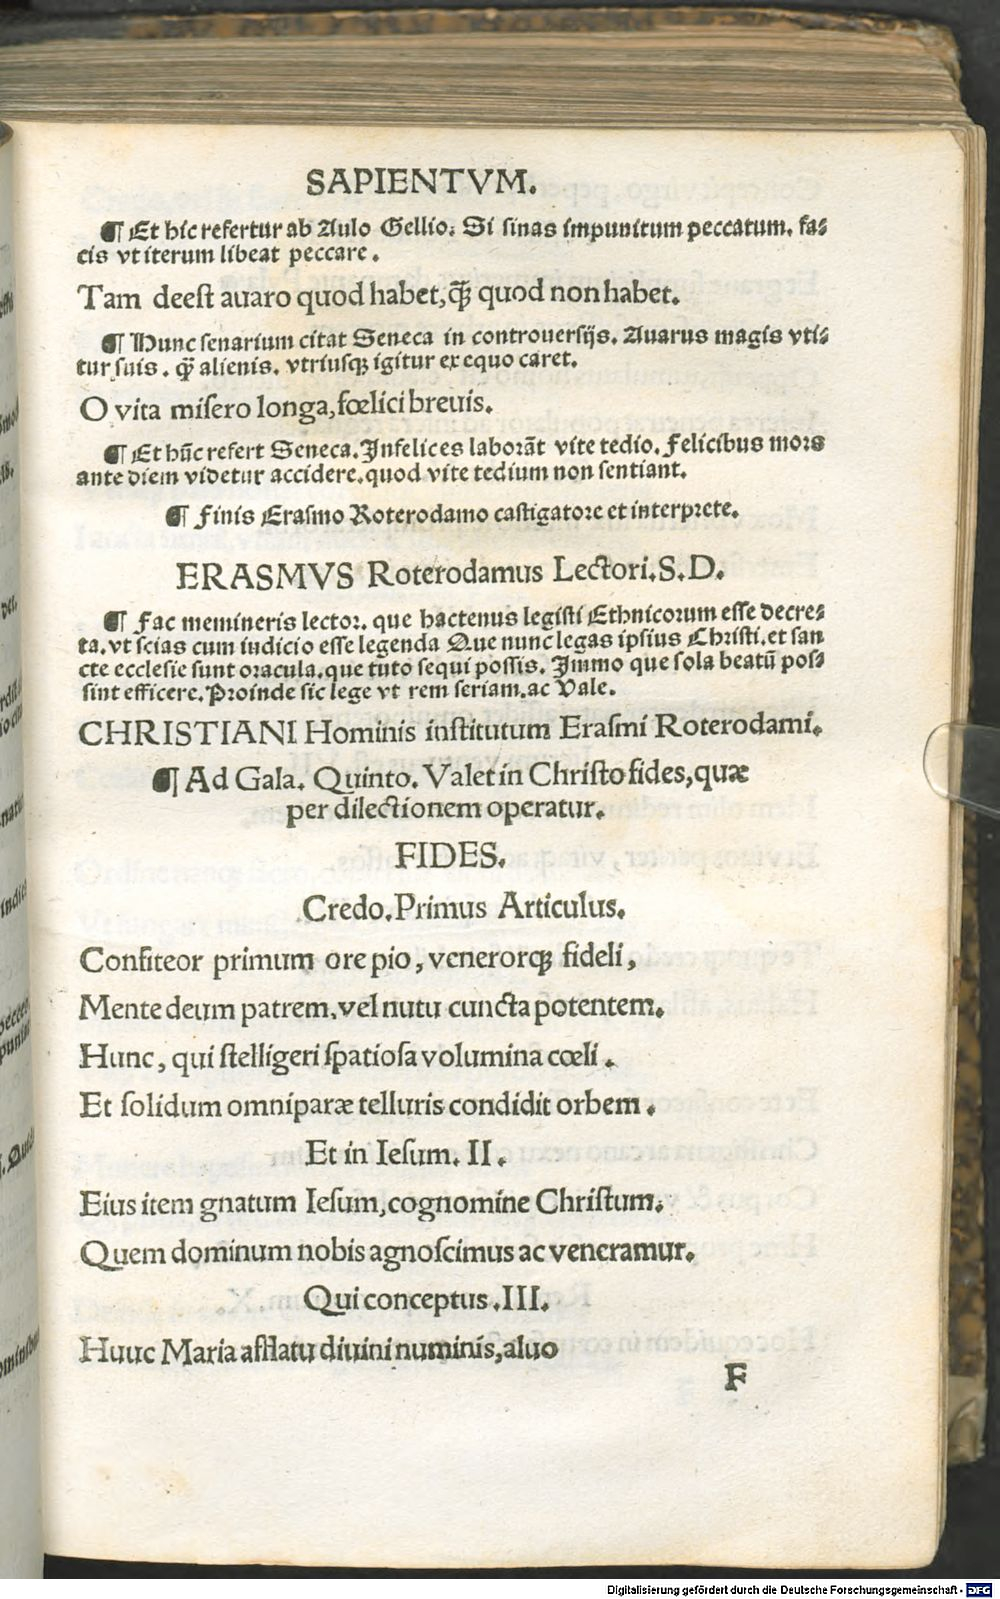 SAPIENTVM.
¶ Et hic refertur ab Aulo Gellio. Si sinas impunitum peccatum, fa-
cis vt iterum libeat peccare.
Tam deest auaro quod habet, q̃ꝫ quod non habet.
¶ Hunc senarium citat Seneca in controuersijs. Auarus magis vti-
tur suis . q̃ꝫ alienis. vtriusqꝫ igitur ex equo caret.
O vita misero longa, fœlici breuis.
¶ Et hũc refert Seneca. Infelices laborãt vite tedio. Felicibus mors
ante diem videtur accidere. quod vite tedium non sentiant.
¶ Finis Erasmo Roterodamo castigatore et interprete.
ERASMVS Roterodamus Lectori. S. D.
¶ Fac memineris lector. que hactenus legisti Ethnicorum esse decre-
ta. vt scias cum iudicio esse legenda Que nunc legas ipsius Christi. et san
cte ecclesie sunt oracula. que tuto sequi possis. Immo que sola beatũ pos-
sint efficere. Proinde sic lege vt rem seriam. ac Vale.
CHRISTIANI Hominis institutum Erasmi Roterodami.
¶ Ad Gala. Quinto. Valet in Christo fides, quæ
per dilectionem operatur.
FIDES.
Credo. Primus Articulus.
Confiteor primum ore pio, venerorqꝫ fideli,
Mente deum patrem, vel nutu cuncta potentem.
Hunc, qui stelligeri spatiosa volumina cœli .
Et solidum omniparæ telluris condidit orbem .
Et in Iesum. II .
Eius item gnatum Iesum, cognomine Christum.
Quem dominum nobis agnoscimus ac veneramur.
Qui conceptus . III.
Huuc Maria afflatu diuini numinis, aluo
F
Digitalisierung gefördert durch die Deutsche Forschungsgemeinschaft - DFG